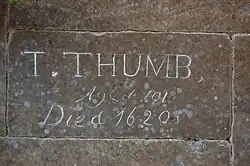 T. THUMB,
Aged 101
Died 1620